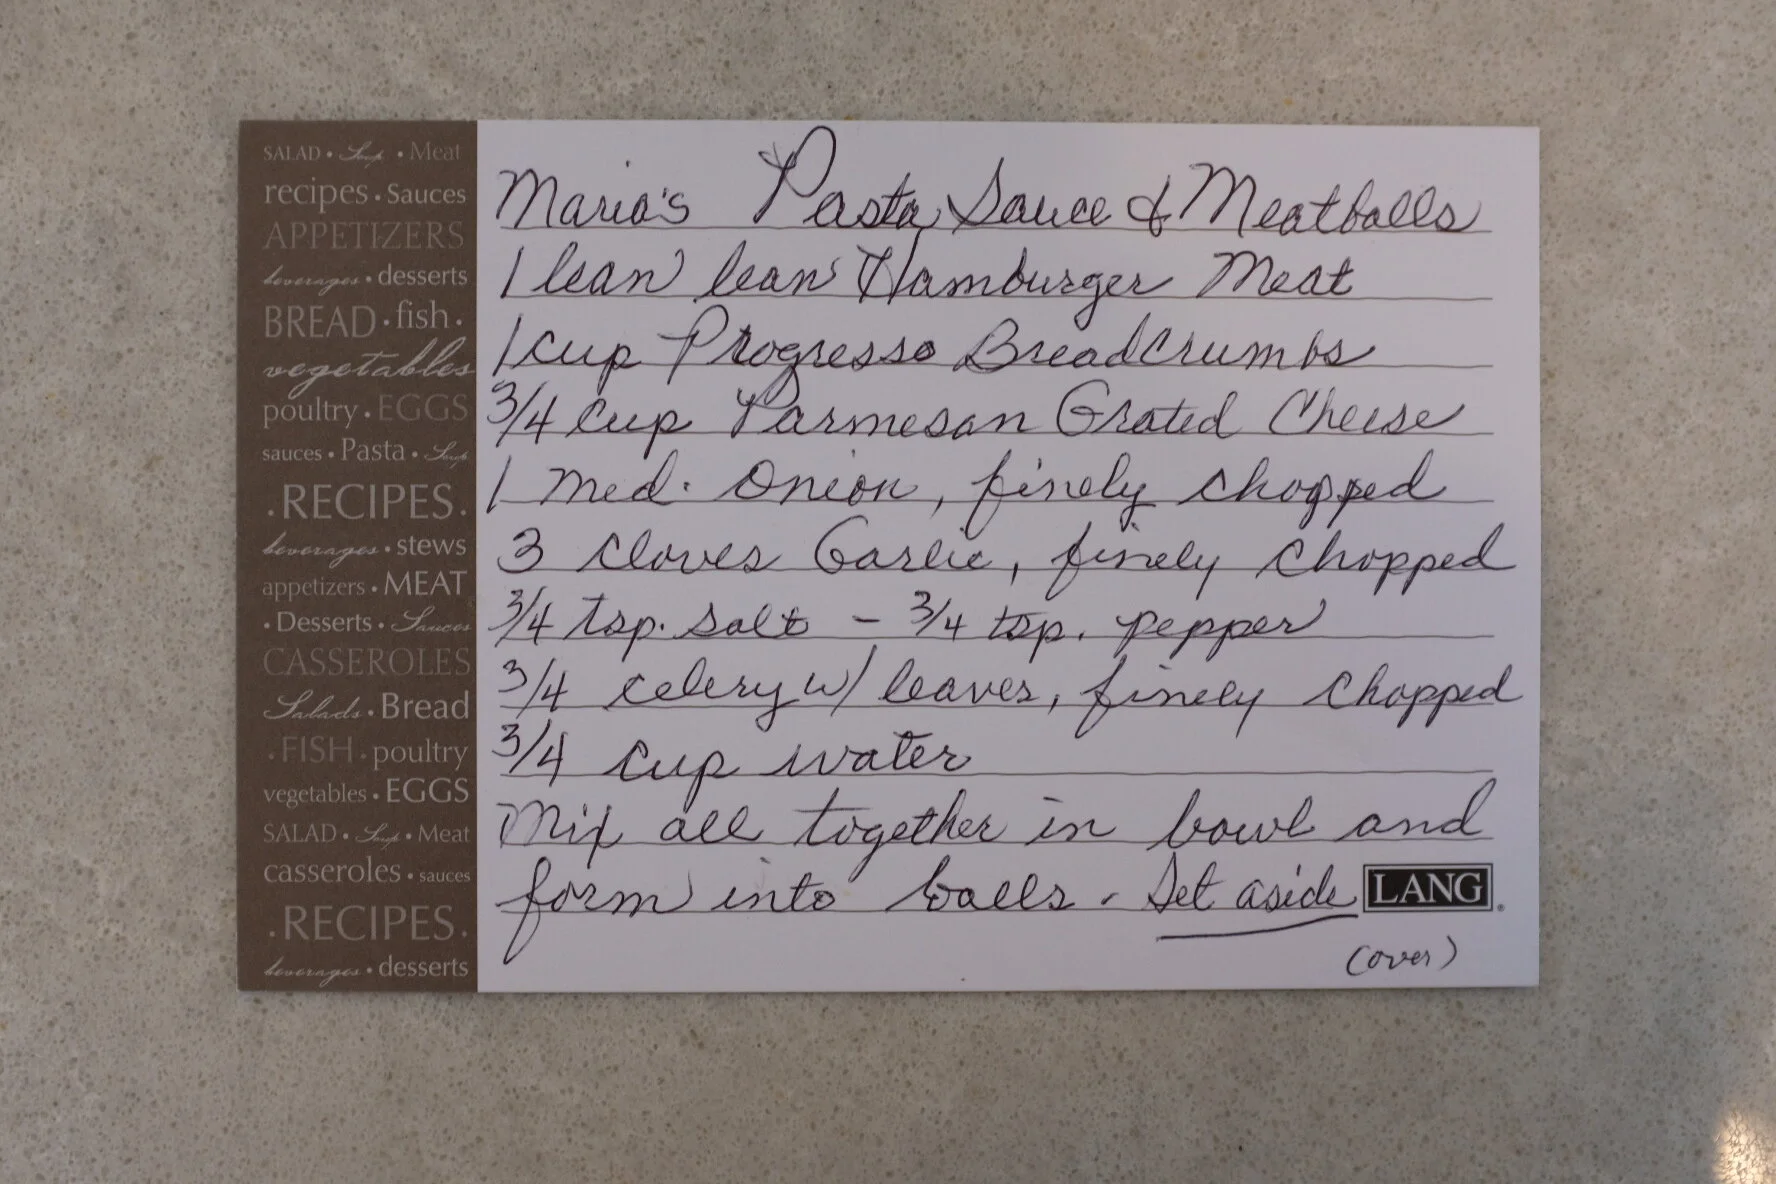 SALAD • Soup • Meat
recipes • Sauces
APPETIZERS
beverages • desserts
BREAD • fish •
vegetables
poultry • EGGS
sauces • Pasta • Soup
• RECIPES •
beverages • stews
appetizers • MEAT
• Desserts • Sauces
CASSEROLES
Salads • Bread
• FISH • poultry
vegetables • EGGS
SALAD • Soup • Meat
casseroles • sauces
• RECIPES •
beverages • desserts
Maria's Pasta Sauce & Meatballs
1 lean lean Hamburger Meat
1 cup Progresso Breadcrumbs
3/4 cup Parmesan Grated Cheese
1 med. Onion, finely chopped
3 cloves Garlic, finely chopped
3/4 tsp. salt - 3/4 tsp. pepper
3/4 celery w/ leaves, finely chopped
3/4 cup water
Mix all together in bowl and
form into balls - Set aside
LANG®
(over)